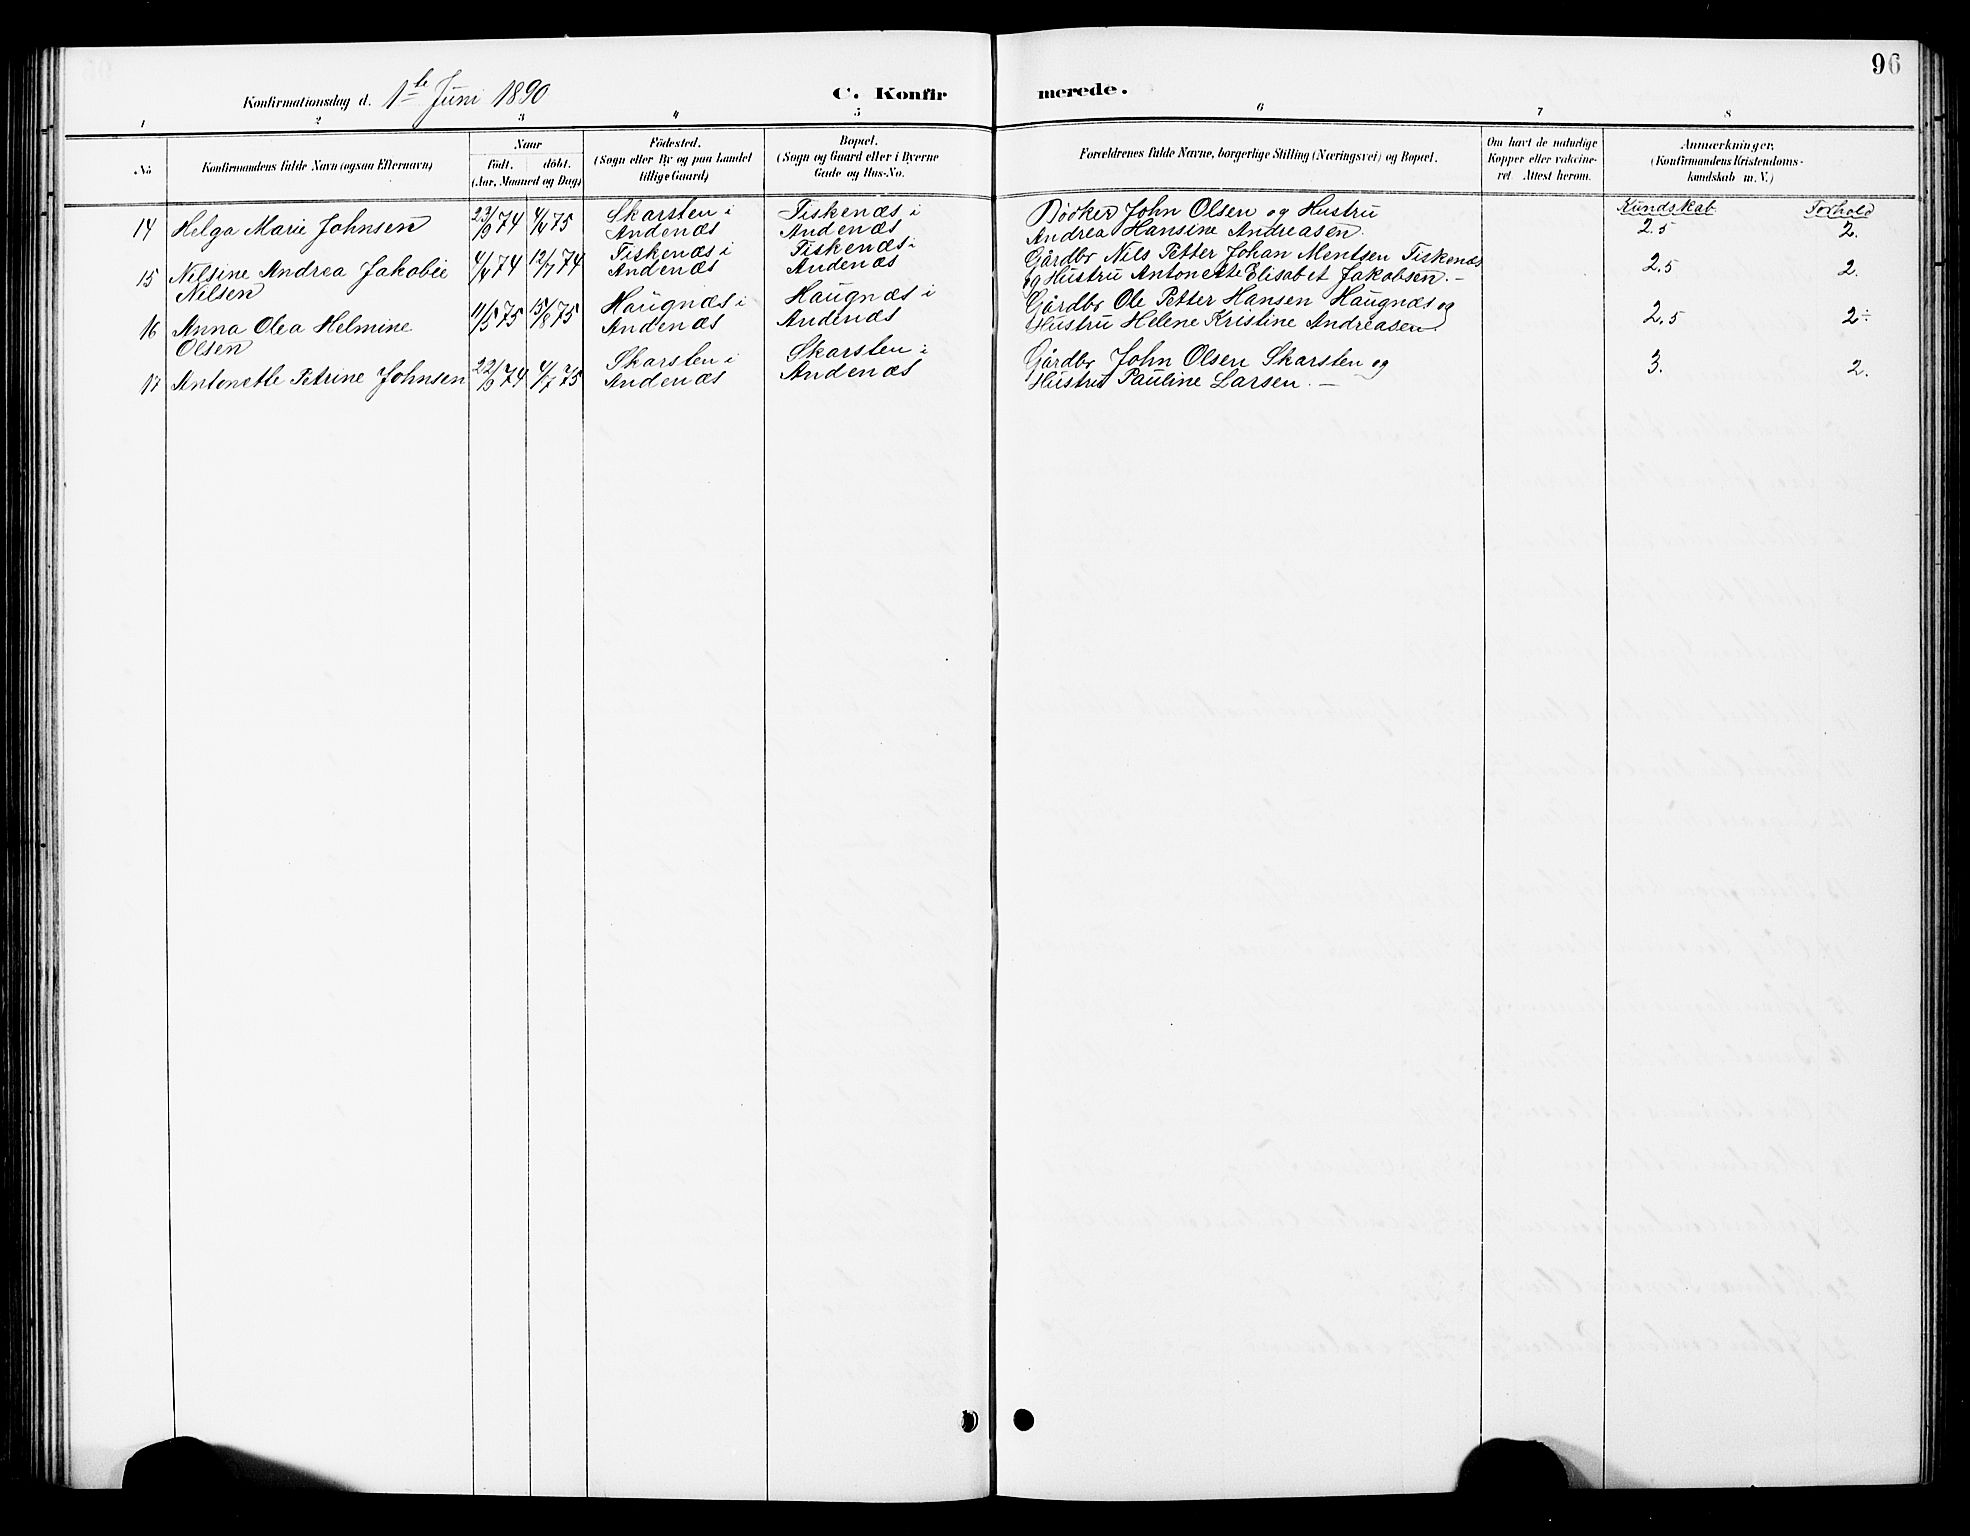 96
Konfirmationsdag d. 1ste Juni 1890
C. Konfirmerede.
1 2 3 4 5 6 7 8
No
Konfirmandens fulde Navn (ogsaa Efternavn)
Naar
födt. döbt.
(Aar, Maaned og Dag)
Födested.
(Sogn eller By og paa Landet
tillige Gaard)
Bopæl.
(Sogn og Gaard eller i Byerne
Gade og Hus-No.
Forældrenes fulde Navne, borgerlige Stilling (Næringsvei) og Bopæl.
Om havt de naturlige
Kopper eller vakcine-
ret. Attest herom.
Anmærkninger.
(Konfirmandens Kristendoms-
kundskab m. V.)
Kundskab Forhold
14 Helga Marie Johnsen 23/9 74 4/4 75 Skarsten i Fiskenæs i Bödker John Olsen og Hustru
Andenæs Andenæs Andrea Hansine Andreasen. 2.5 2.
15 Nilsine Andrea Jakobie 4/4 74 12/7 74 Fiskenæs i Fiskenæs i Gårdbr Nils Petter Johan Mentsen Fiskenæs
Nilsen Andenæs Andenæs og Hustru Antonette Elisabet Jakobsen. — 2.5 2.
16 Anna Olea Helmine 11/5 75 15/8 75 Haugnæs i Haugnæs i Gårdbr Ole Petter Hansen Haugnæs og
Olsen Andenæs Andenæs Hustru Helene Kristine Andreasen. 2.5 2÷
17 Antonette Petrine Johnsen 22/9 74 4/7 75 Skarsten i Skarsten i Gårdbr John Olsen Skarsten og
Andenæs Andenæs Hustru Pauline Larsen. — 3. 2.